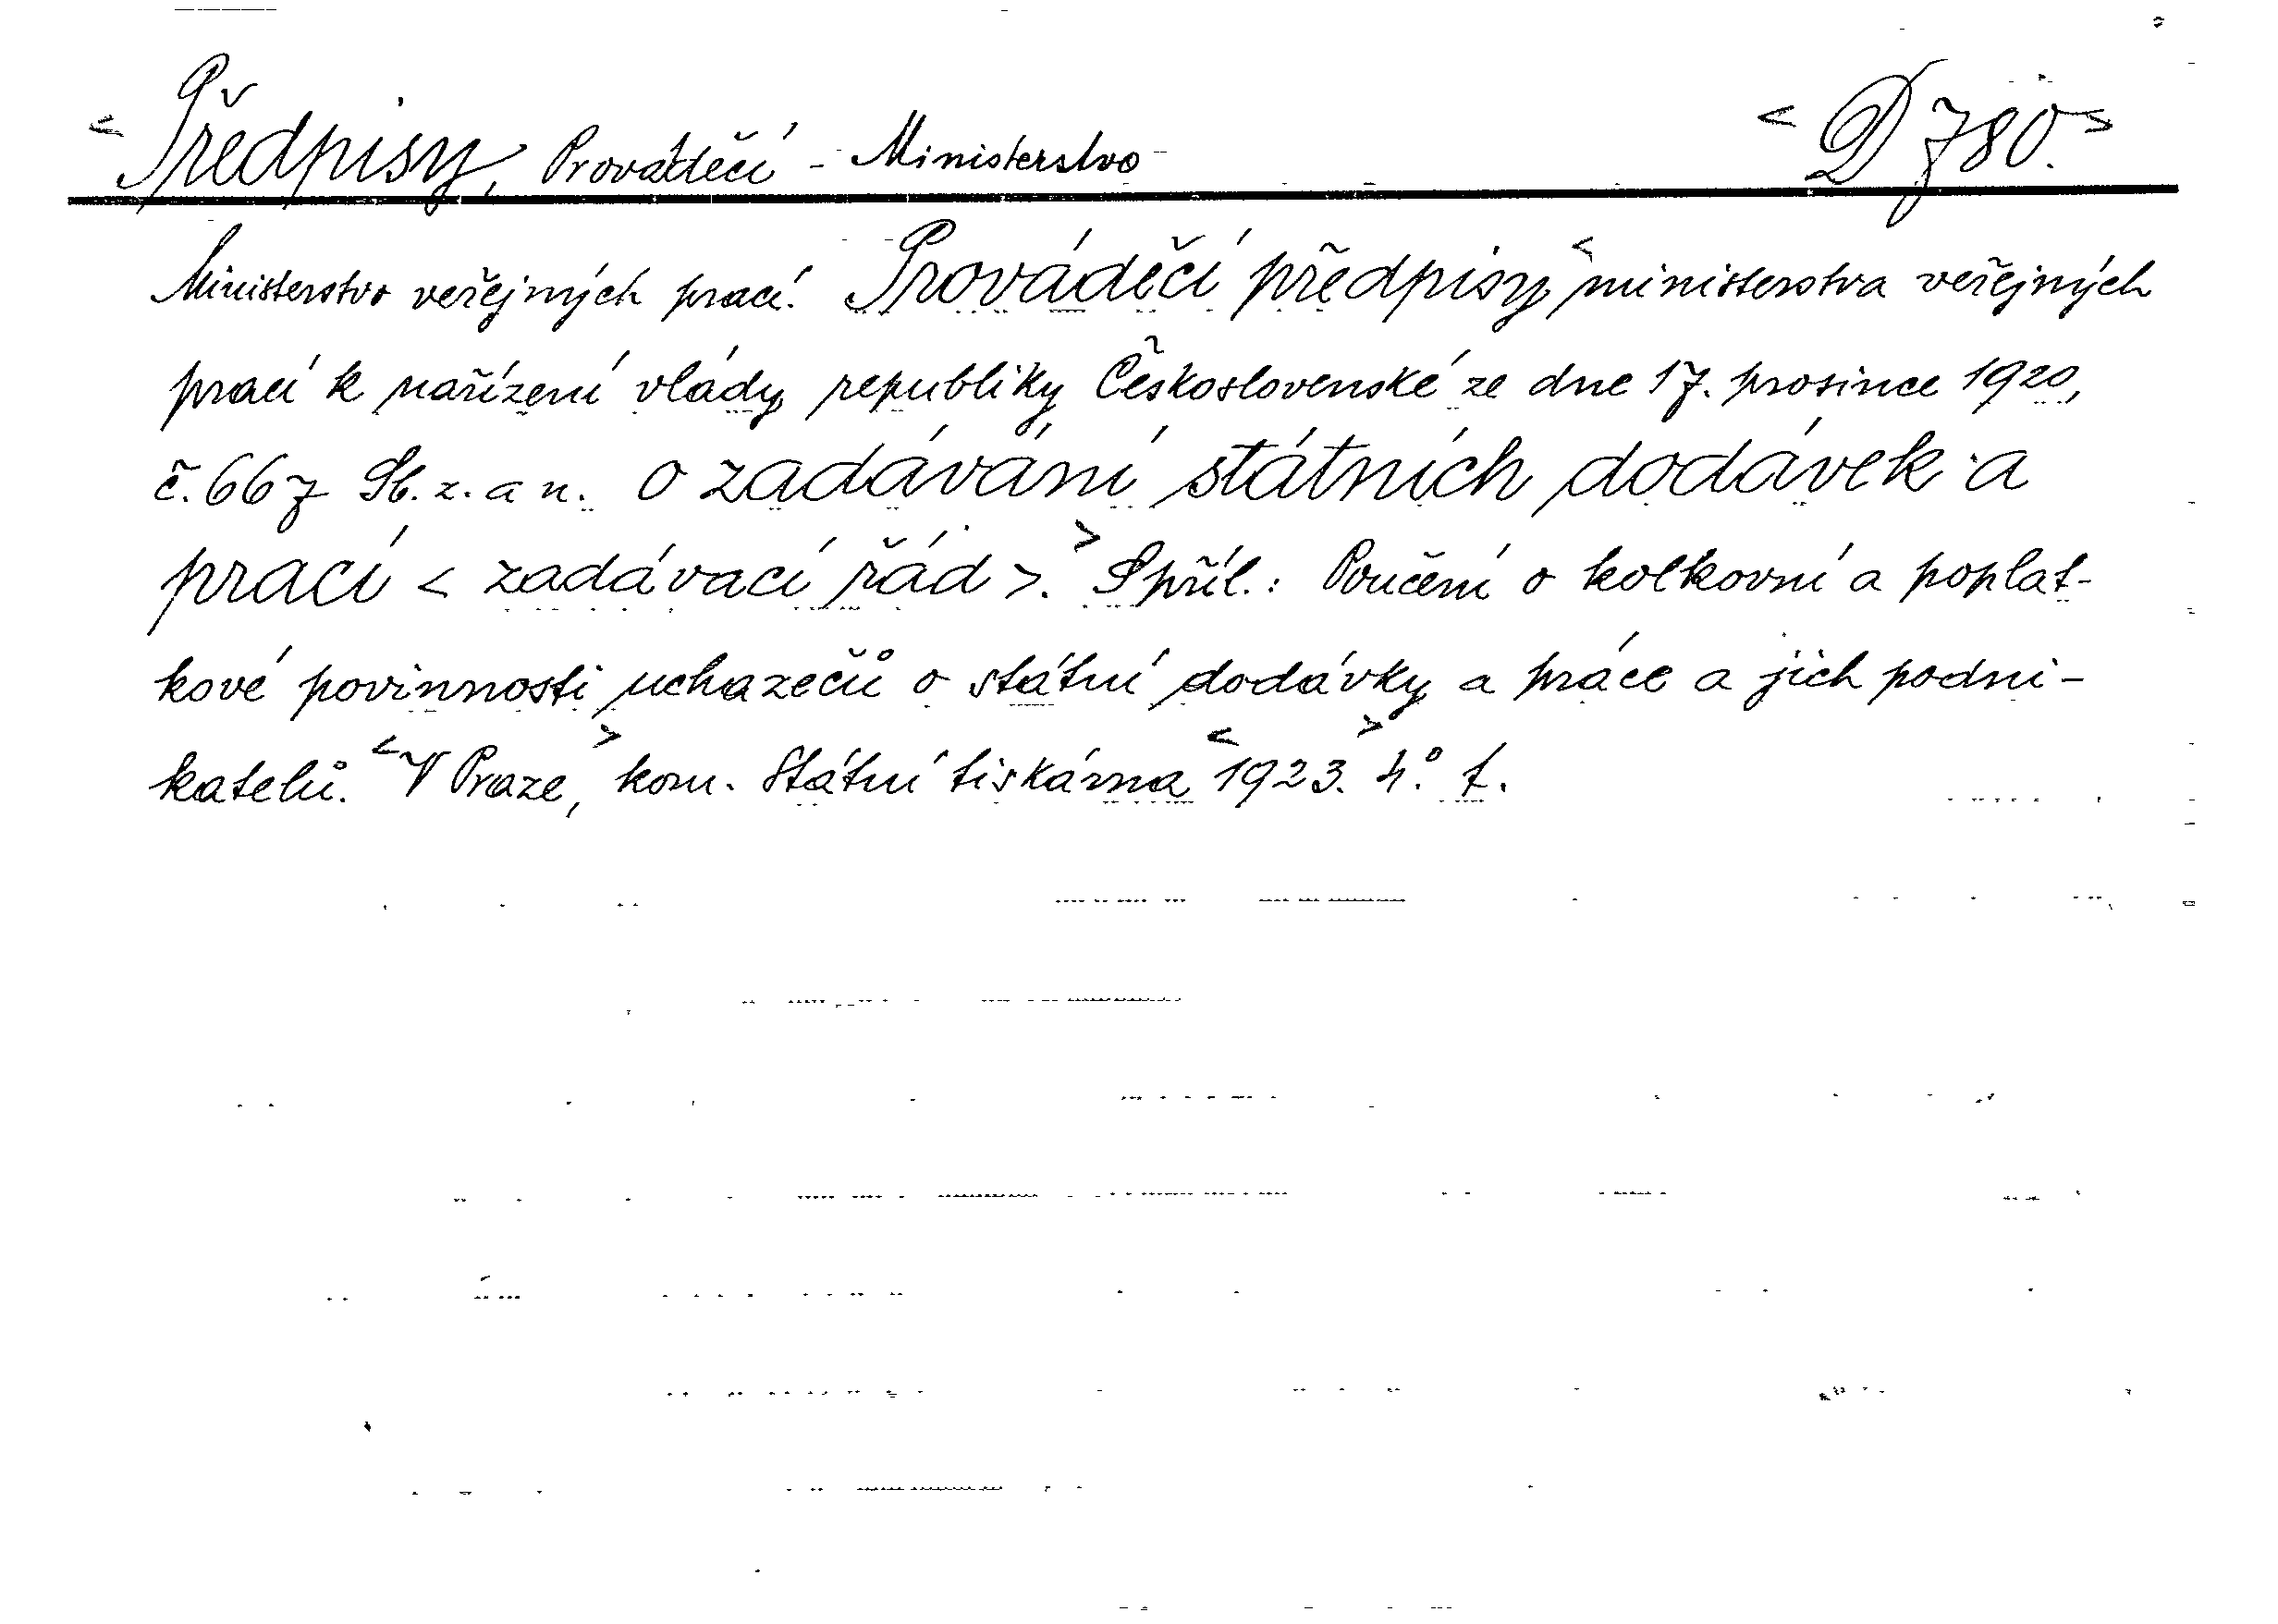 < Předpisy, Prováděčí - Ministerstvo < D 780. >
Ministerstvo veřejných prací. Prováděčí předpisy < ministerstva veřejných
prací k nařízení vlády republiky Československé ze dne 17. prosince 1920,
č. 667 Sb. z. a n. o zadávání státních dodávek a
prací < zadávací řád >. > S příl.: Poučení o kolkovní a poplat-
kové povinnosti uchazečů o státní dodávky a práce a jich podni-
katelů. < V Praze, > kom. Státní tiskárna < 1923. > 4.° t.